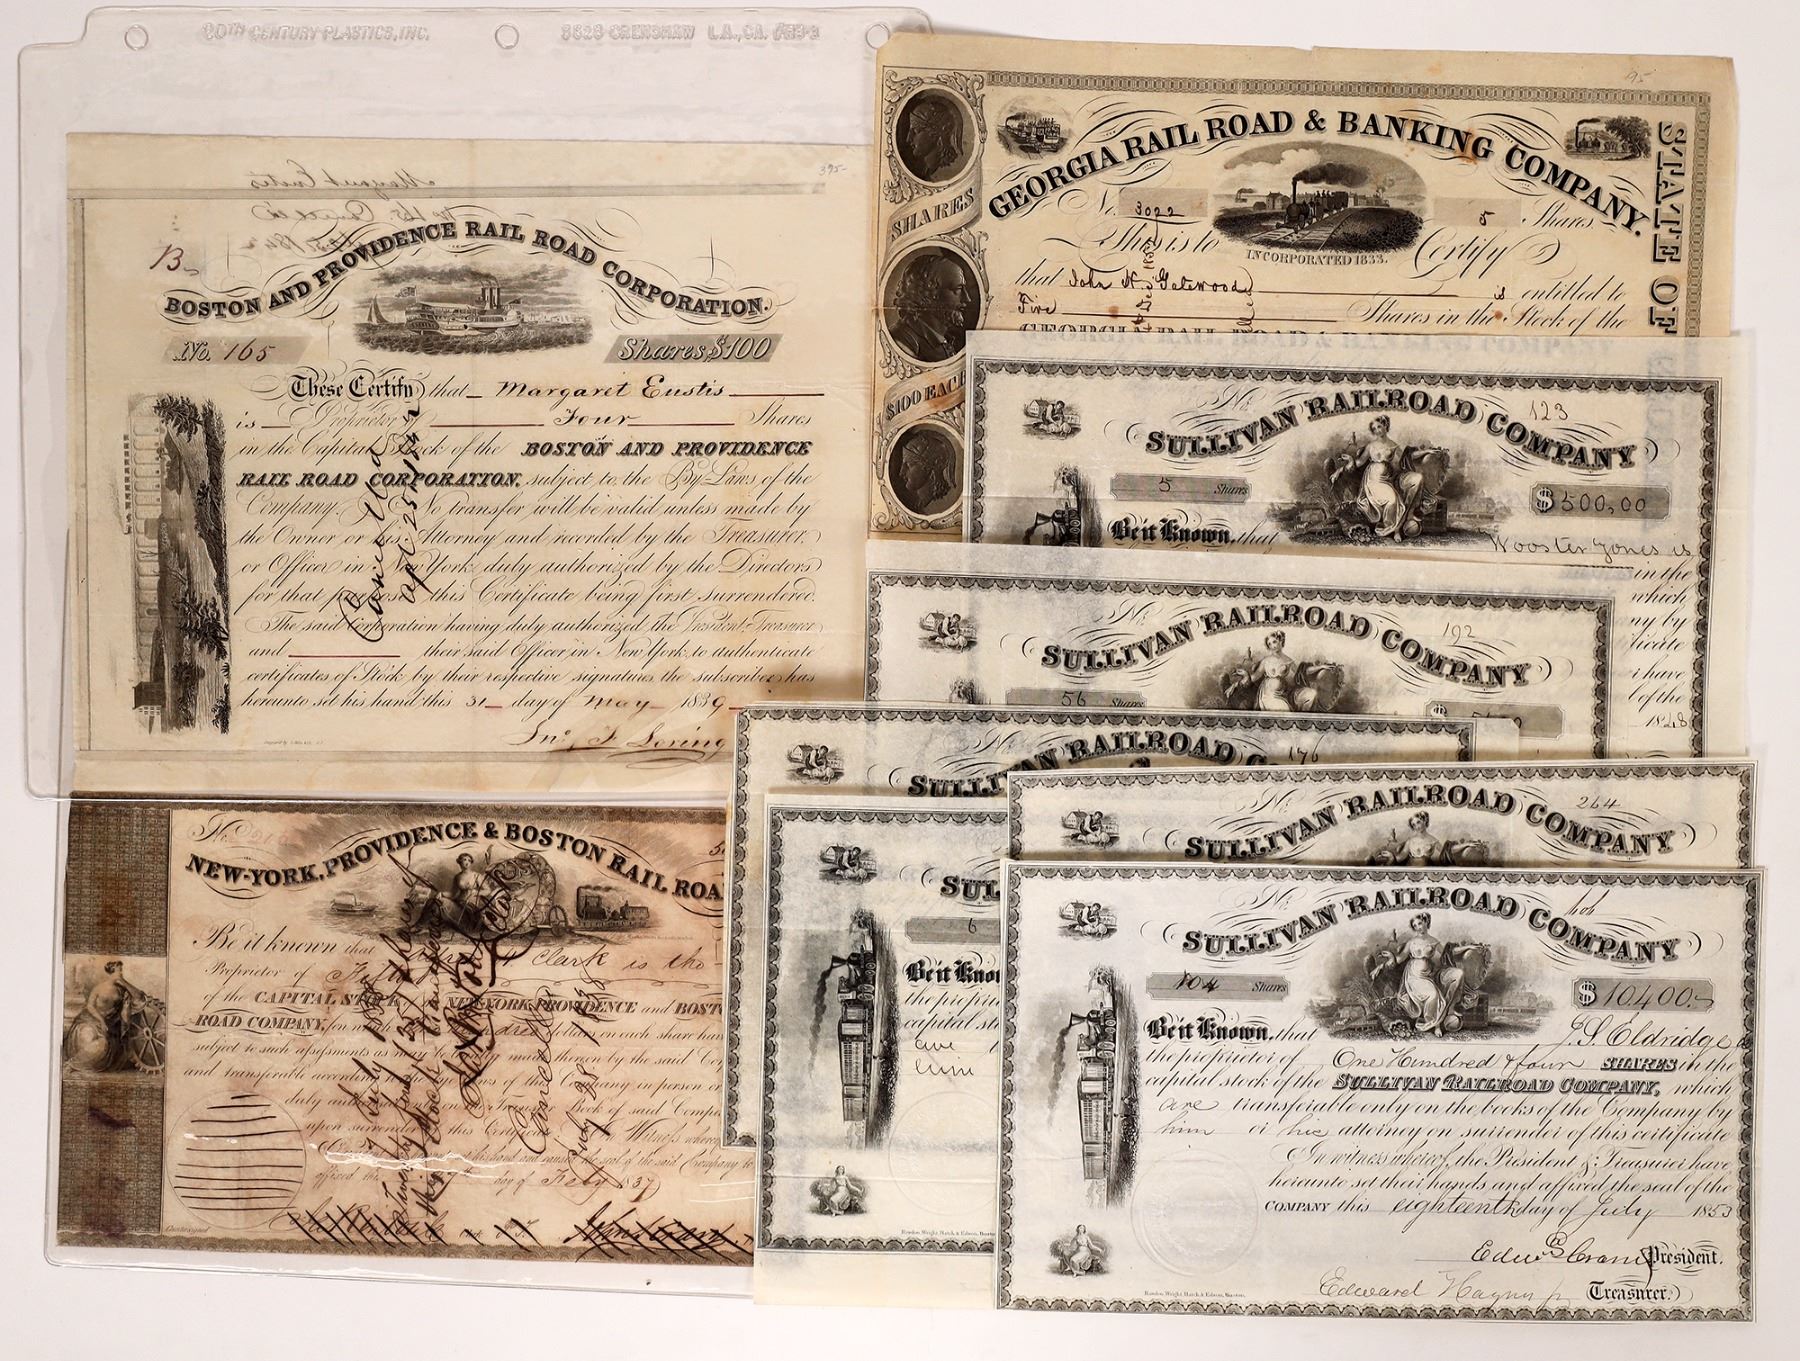 20TH CENTURY PLASTICS, INC. 3628 CRENSHAW L.A., CA.
395-
Margaret Eustis
B
BOSTON AND PROVIDENCE RAIL ROAD CORPORATION.
No. 165 Shares, $100
These Certify that Margaret Eustis
is Proprietor of Four Shares
in the Capital Stock of the BOSTON AND PROVIDENCE
RAIL ROAD CORPORATION, subject to the By-Laws of the
Company. No transfer will be valid unless made by
the Owner or his Attorney and recorded by the Treasurer
or Officer in New York duly authorized by the Directors
for that purpose this Certificate being first surrendered.
The said Corporation having duly authorized the President Treasurer
and their said Officer in New York to authenticate
certificates of Stock by their respective signatures the subscriber has
hereunto set his hand this 31 day of May 1839
Jno. F. Loring
NEW-YORK, PROVIDENCE & BOSTON RAIL ROA
Be it known that Clark is the
Proprietor of
of the CAPITAL STOCK NEW-YORK, PROVIDENCE and BOST
ROAD COMPANY, on which dollars on each share hav
subject to such assessments as may be made thereon by the said
and transferable according to the By Laws of this Company in person or
duly on the Transfer Book of said Comp
upon surrender this Certificate In Witness whereof
and caused the seal of the said Company to
affixed day of Feby 1837
Cancelled
July 28 1838
95
GEORGIA RAIL ROAD & BANKING COMPANY.
STATE OF
SHARES
$100 EACH
No. 3022 5 Shares.
This is to Certify
INCORPORATED 1833.
that John N. Gatewood is entitled to
Five Shares in the Stock of the
GEORGIA RAIL ROAD & BANKING COMPANY
No. 123
SULLIVAN RAILROAD COMPANY
5 Shares $500,00
Be it Known, that Wooster Jones is
in the
which
ny by
ificate
r have
l of the
1848
No. 192
SULLIVAN RAILROAD COMPANY
56 Shares
No. 176
SULLIVAN RAILROAD CO
No. 264
SULLIVAN RAILROAD COMPANY
SUL
6
Be it Know
the proprie
capital sto
are
him
Bowden, Wright, Hatch & Edson, Bost
No.
SULLIVAN RAILROAD COMPANY
104 Shares $10400.-
Be it Known, that J. S. Eldridge is
the proprietor of One Hundred & four SHARES in the
capital stock of the SULLIVAN RAILROAD COMPANY, which
are transferable only on the books of the Company by
him or his attorney on surrender of this certificate
In witness whereof, the President & Treasurer have
hereunto set their hands and affixed the seal of the
COMPANY this eighteenth day of July 1853
President.
Treasurer.